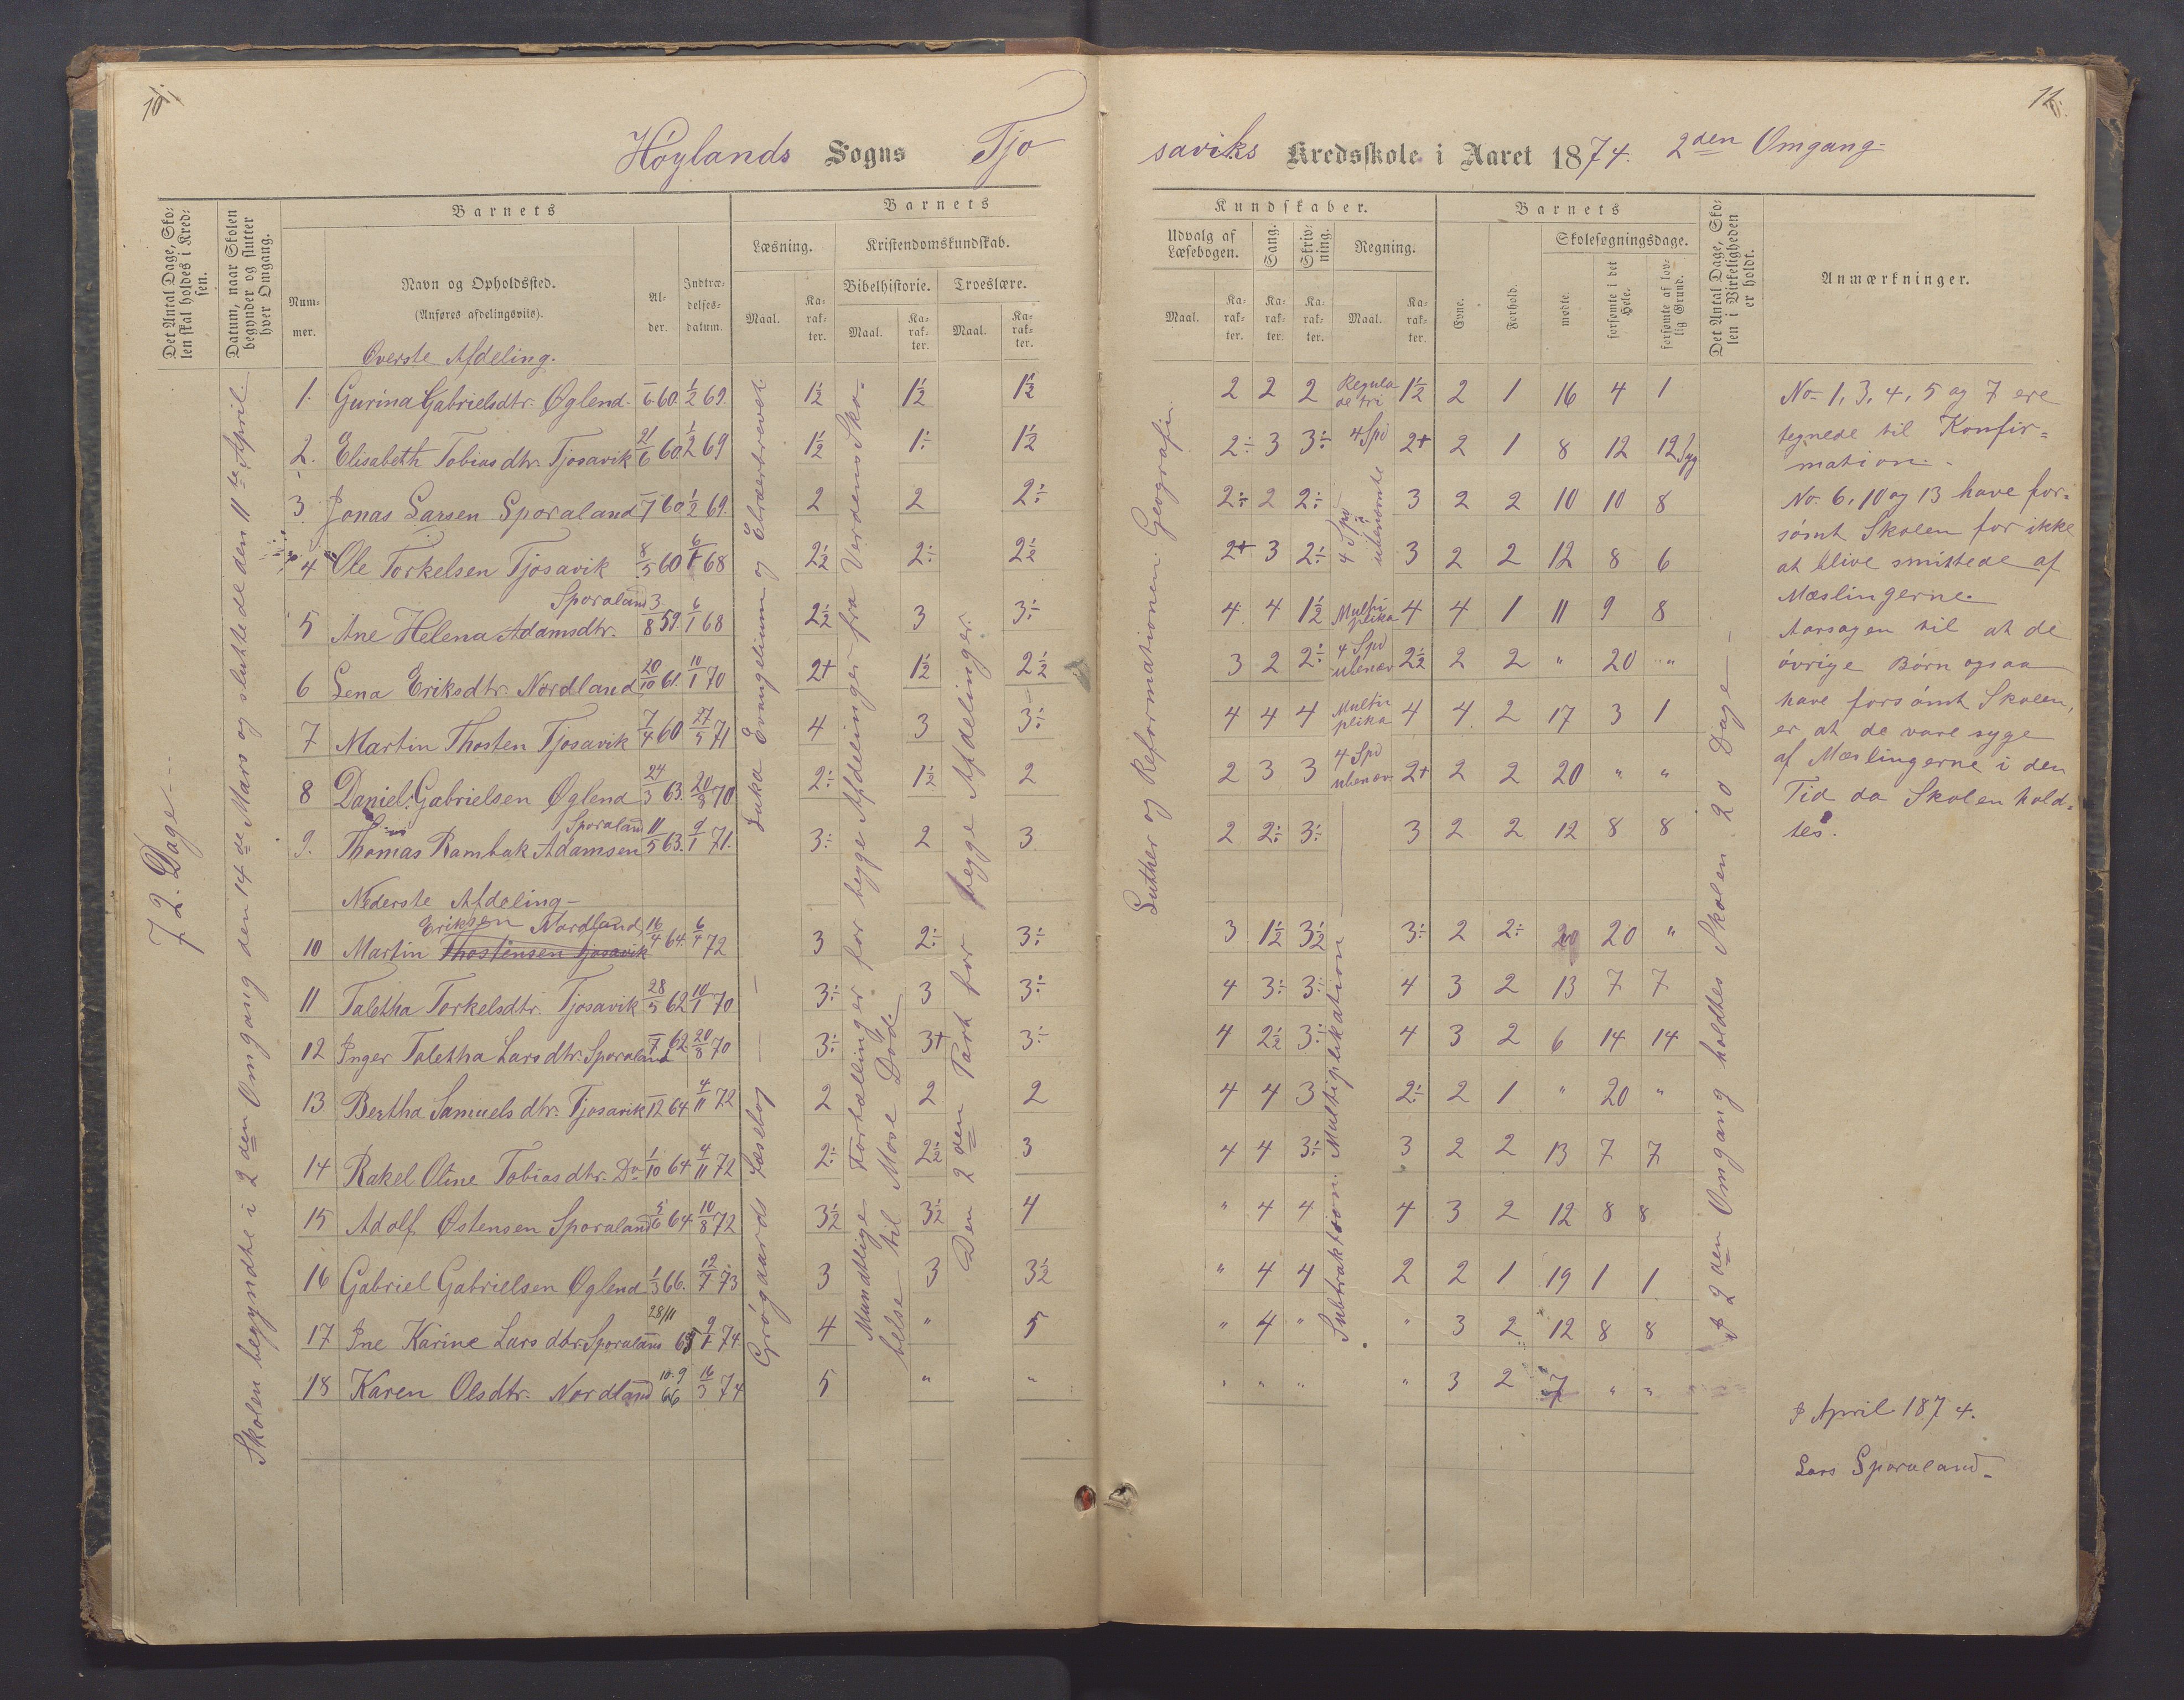 10
12
Höylands Sogns Tjo
saviks Kredsskole i Aaret 1874. 2den Omgang.
Det Antal Dage, Skolen skal holdes i Kredsen.
Datum, naar Skolen begynder og slutter hver Omgang.
Barnets
Nummer.
Navn og Opholdssted.
(Anføres afdelingsviis).
Alder.
Indtrædelsesdatum.
Barnets
Læsning.
Maal.
Karakter.
Kristendomskundskab.
Bibelhistorie.
Maal.
Karakter.
Troeslære.
Maal.
Karakter.
Kundskaber.
Udvalg af Læsebogen.
Maal.
Karakter.
Sang.
Karakter.
Skrivning.
Karakter.
Regning.
Maal.
Karakter.
Barnets
Evne.
Forhold.
Skolesøgningsdage.
mødte.
forsømte i det Hele.
forsømte af lovlig Grund.
Det Antal Dage, Skolen i Virkeligheden er holdt.
Anmærkninger.
72. Dage
Skolen begyndte i 2den Omgang den 14de Mars og sluttede den 11te April.
Luka Evangelium og Ebræerbrevet
Grögaards Læsebog
Mundtlige Fortællinger for begge Afdelinger fra Verdens Skabelse til Mose Död.
Den 2den Part for begge Afdelinger.
Luther og Reformationen. Geografi.
Subtraktion. Multiplikation
I 2den Omgang holdtes Skolen 20 Dage
Överste Afdeling.
1. Gurina Gabrielsdtr. Øglend. 6 60. 1/2 69. 1½ 1½ 1½ 2 2 2 Regula de tri 1½ 2 1 16 4 1
2. Elisabeth Tobiasdtr. Tjosavik 21/6 60 1/2 69 1½ 1÷ 1½ 2÷ 3 3÷ 4 Spd 2+ 2 1 8 12 12 Syg
3 Jonas Larsen Sporaland 7 60 1/2 69. 2 2 2÷ 2÷ 2 2÷ 4 Spd ubenævnte 3 2 2 10 10 8
4 Ole Torkelsen Tjosavik 8/5 60 6/1 68 2½ 2÷ 2½ 2+ 3 2÷ 3 2 2 12 8 6
5 Ane Helena Adamsdtr. Sporaland 3/8 59. 6/1 68 2½ 3 3÷ 4 4 1½ Multiplika 4 4 1 11 9 8
6 Lena Eriksdtr. Nordland 20/10 61. 10/1 70 2+ 1½ 2½ 3 2 2÷ 4 Spd ubenæv 2½ 2 2 " 20 "
7 Martin Thosten Tjosavik 7/4 60 27/5 71 4 3 3÷ 4 4 4 Multiplika 4 4 2 17 3 1
8 Daniel Gabrielsen Øglend 24/3 63. 20/8 70 2÷ 1½ 2 2 3 3 4 Spd ubenæv. 2+ 2 2 20 " "
9. Thomas Rambak Adamsen Sporaland 11/5 63. 9/1 71. 3÷ 2 3 2 2÷ 3÷ 3 2 2 12 8 8
Nederste Afdeling
10 Martin Thostensen Tjosavik Eriksen Nordland 16/4 64. 6/4 72 3 2÷ 3÷ 3 1½ 3½ 3÷ 2 2÷ 20 20 "
11 Taletha Torkelsdtr. Tjosavik 28/5 62 10/1 70 3÷ 3 3÷ 4 3÷ 3÷ 4 3 2 13 7 7
12 Inger Taletha Larsdtr. Sporaland 7 62 20/8 70 3÷ 3+ 3÷ 4 2½ 3÷ 4 3 2 6 14 14
13 Bertha Samuelsdtr. Tjosavik 12 64 4/11 72 2 2 2 4 4 3 2÷ 2 1 " 20 "
14 Rakel Oline Tobiasdtr. Do 1/10 64 4/11 72 2÷ 2½ 3 4 4 3÷ 3 2 2 13 7 7
15 Adolf Østensen Sporaland 5/6 64 10/8 72 3½ 3½ 4 " 4 4 4 3 2 12 8 8
16 Gabriel Gabrielsen Øglend 1/3 66. 12/7 73 3 3 3½ " 4 4 2 2 1 19 1 1
17 Ine Karine Larsdtr Sporaland 28/11 65 9/1 74. 4 " 5 " 4 " " 3 2 12 8 8
18 Karen Olsdtr. Nordland 10.9 66 16/3 74 5 " " " " " " 3 2 7 " "
No. 1, 3, 4, 5 og 7 ere
tegnede til Konfir=
mation.
No. 6, 10 og 13 have for=
sömt Skolen for ikke
at blive smittede af
Mæslingerne.
Aarsagen til at de
övrige Börn ogsaa
have forsömt Skolen,
er at de vare syge
af Mæslingerne i den
Tid da Skolen hold=
tes.
I April 1874.
Lars Sporaland.